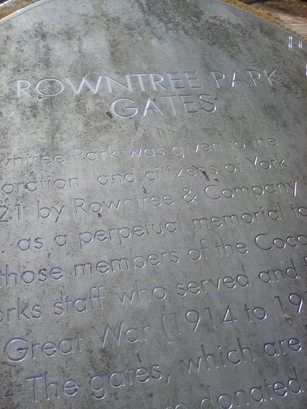 ROWNTREE PARK
GATES
wntree Park was given to the
oration and citizens of York
21 by Rowntree & Company
as a perpetual memorial to
those members of the Coco
orks staff who served and
Great War (1914 to 19
The gates, which are
donated